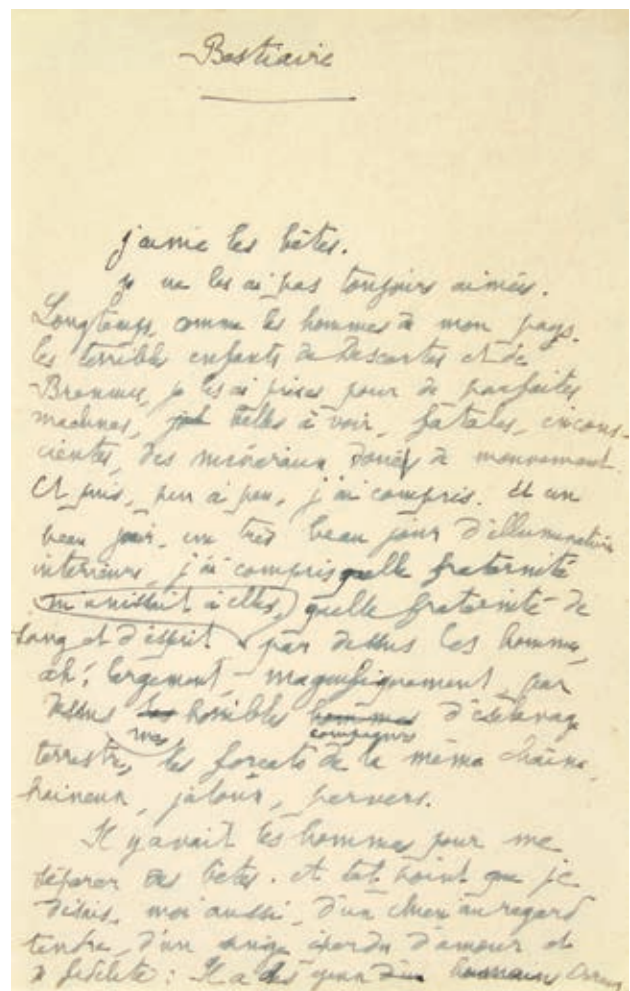 Bestiaire
j'aime les bêtes.
je ne les ai pas toujours aimées.
Longtemps, comme les hommes de mon pays,
les terribles enfants de Descartes et de
je les ai prises pour de parfaites
machines, belles à voir, fatales, incons-
cientes, des minéraux doués de mouvement.
Et puis, peu à peu, j'ai compris. Et un
beau jour, un très beau jour d'illumination
intérieure, j'ai compris quelle fraternité
m'unissait à elles, quelle fraternité de
sang et d'esprit par dessus les hommes,
ah! largement, magnifiquement, par
dessus les horribles hommes d'esclavage
mes compagnons
terrestre, les forçats de la même chaîne,
haineux, jaloux, pervers.
Il y avait les hommes pour me
séparer des bêtes. et tel point que je
disais, moi aussi, d'un chien au regard
tendre, d'un singe éperdu d'amour et
de fidélité : Il a des yeux humains